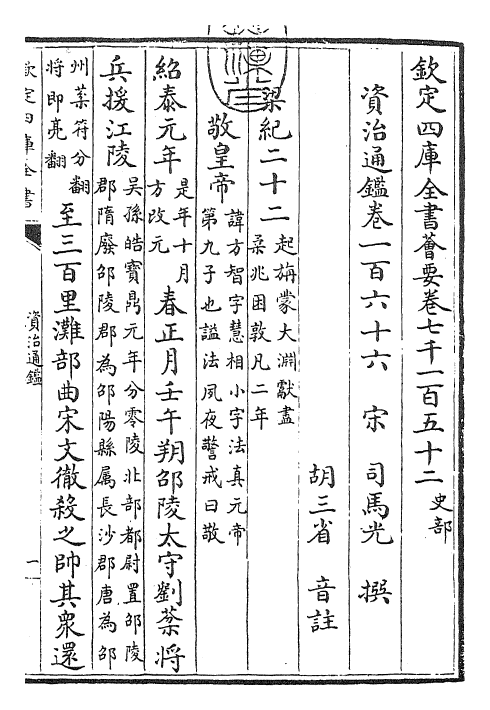 欽定四庫全書薈要卷七千一百五十二 史部
資治通鑑卷一百六十六 宋 司馬光 撰
胡三省 音註
梁紀二十二 起旃蒙大淵獻盡
柔兆困敦凡二年
敬皇帝 諱方智字慧相小字法真元帝
第九子也諡法夙夜警戒曰敬
紹泰元年 是年十月
方改元 春正月壬午朔邵陵太守劉棻將
兵援江陵 吳孫皓寶鼎元年分零陵北部都尉置邵陵
郡隋廢邵陵郡為邵陽縣屬長沙郡唐為邵
州棻符分翻
將即亮翻 至三百里灘部曲宋文徹殺之帥其衆還
欽定四庫全書
資治通鑑
一